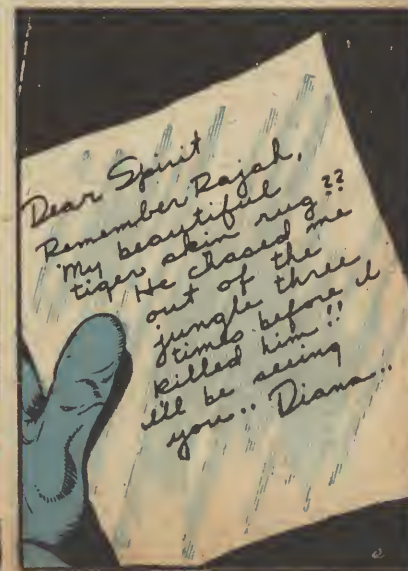 Dear Spirit
Remember Rajah,
My beautiful
tiger skin rug??
He chased me
out of the
jungle three
times before I
killed him!!
I'll be seeing
you.. Diana..